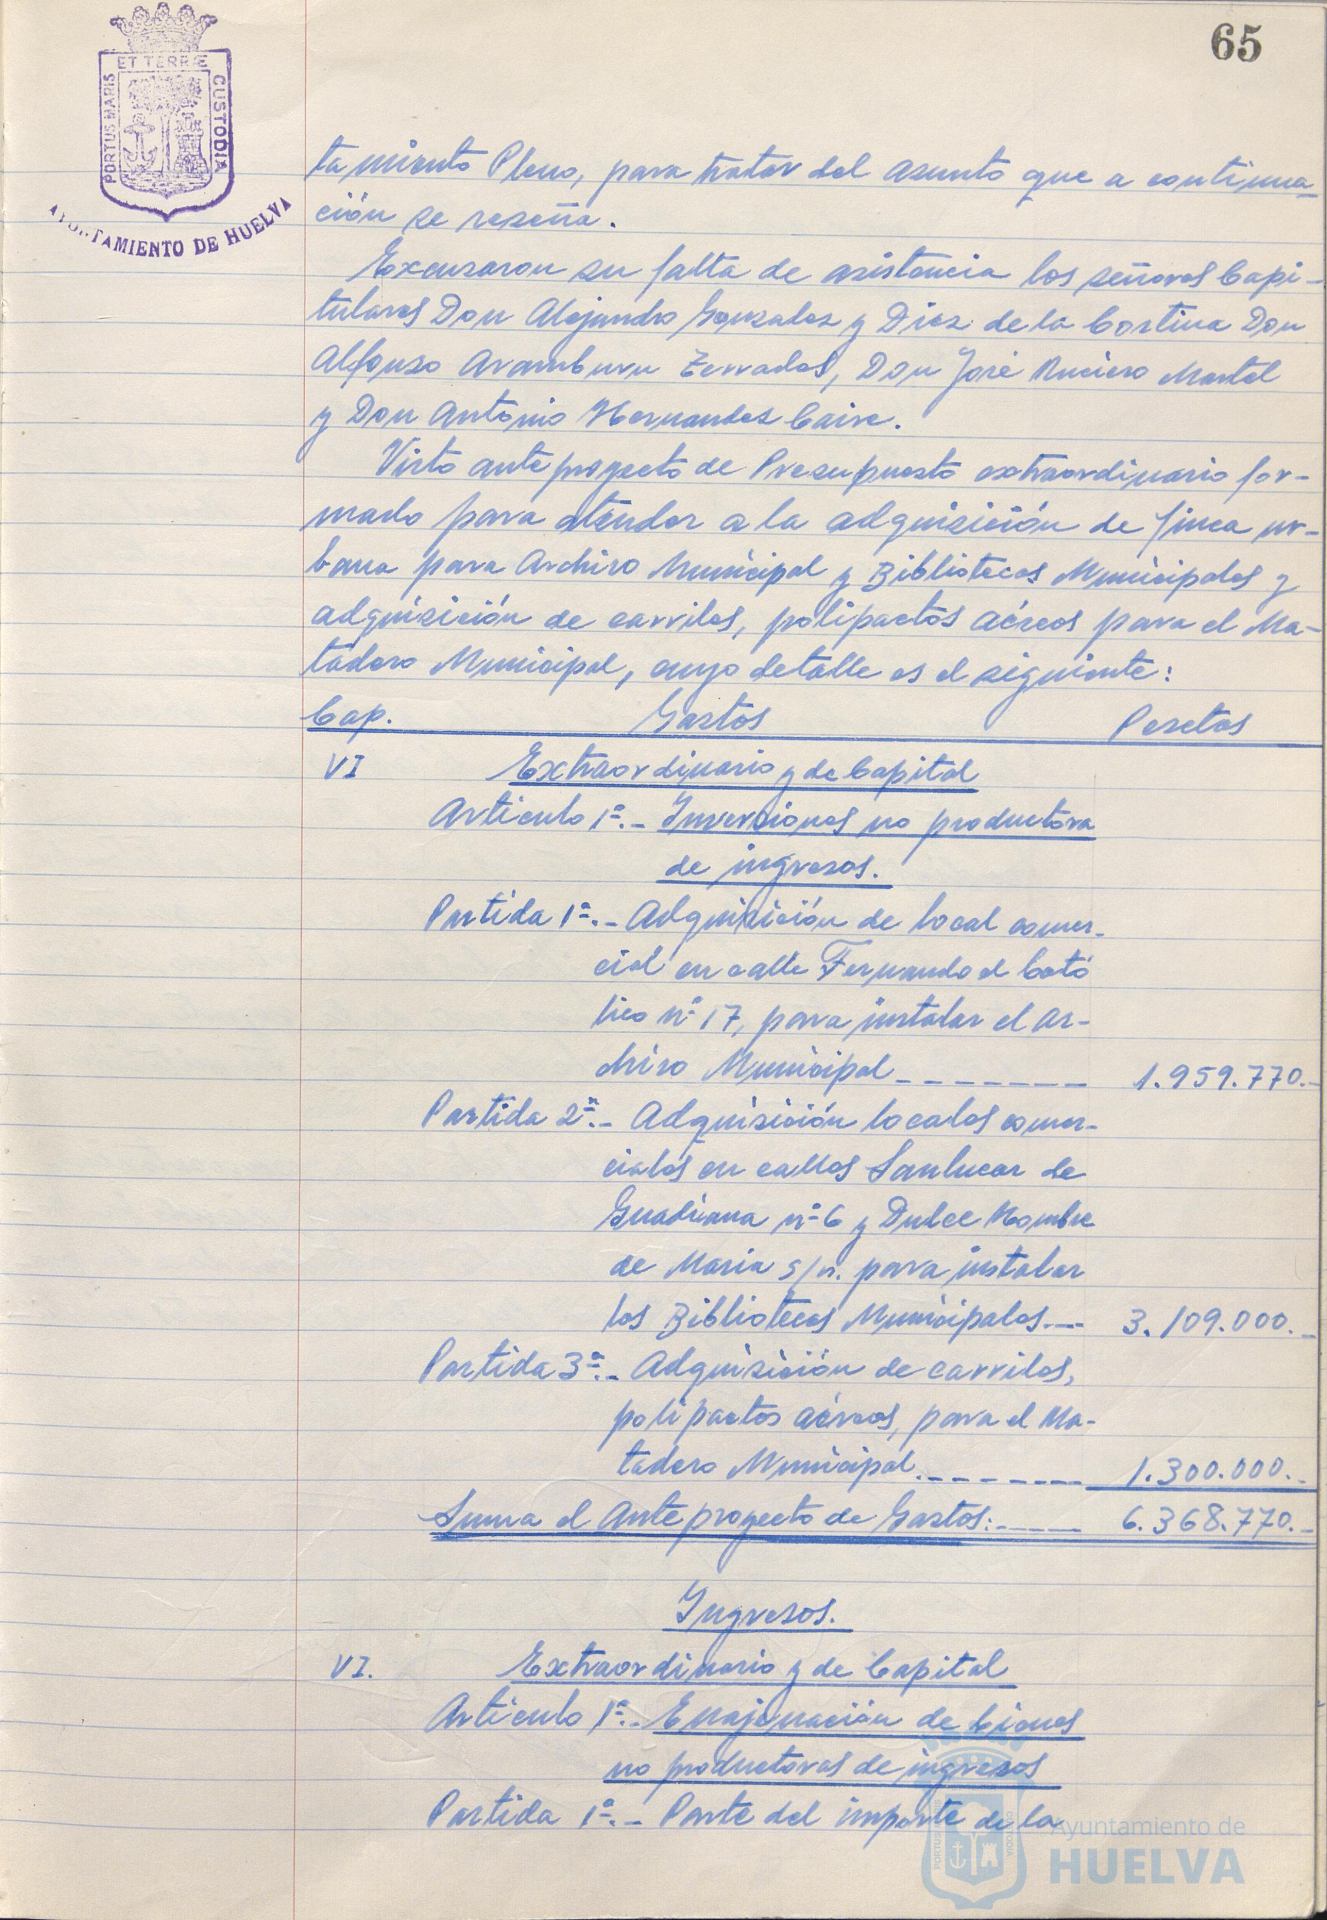 65
ET TERRÆ
PORTUS MARIS
CUSTODIA
AYUNTAMIENTO DE HUELVA
tamiento Pleno, para tratar del asunto que a continua-
ción se reseña.
Excusaron su falta de asistencia los señores Capi-
tulares Don Alejandro Gonzalez y Diez de la Cortina Don
Alfonso Aramburu Terrades, Don José Ruciero Martel
y Don Antonio Hernandez Caire.
Visto anteproyecto de Presupuesto extraordinario for-
mado para atender a la adquisición de finca ur-
bana para Archivo Municipal y Bibliotecas Municipales y
adquisición de carriles, polipastos aéreos para el Ma-
tadero Municipal, cuyo detalle es el siguiente:
Cap. Gastos Pesetas
VI Extraordinario y de Capital
Artículo 1º.- Inversiones no productora
de ingresos.
Partida 1ª.- Adquisición de local comer-
cial en calle Fernando el Cató
lico nº 17, para instalar el Ar-
chivo Municipal ------- 1.959.770.-
Partida 2ª.- Adquisición locales comer-
ciales en calles Sanlucar de
Guadiana nº 6 y Dulce Nombre
de Maria s/n. para instalar
las Bibliotecas Municipales.-- 3.109.000.-
Partida 3ª.- Adquisición de carriles,
polipastos aéreos, para el Ma-
tadero Municipal.-------- 1.300.000.-
Suma el Anteproyecto de Gastos:----- 6.368.770.-
Ingresos.
VI. Extraordinario y de Capital
Artículo 1º.- Enajenación de bienes
no productores de ingresos
Partida 1ª.- Parte del importe de la
Ayuntamiento de
HUELVA